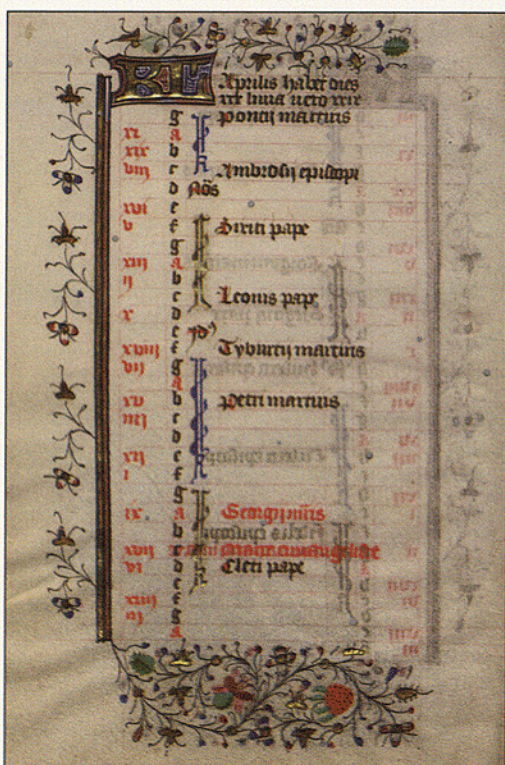 KL Aprilis habet dies
xxx luna uero xxix
g Pontij martiris
xi a
xix b
viij c Ambrosij episcopi
d Nōs
xvi e
v f Sixti pape
g
xiij a
ij b
c Leonis pape
x d
e yd⁹
xviij f Tyburtij martiris
vij g
a
xv b Petri martiris
iiij c
d
xij e
i f
g
ix a Georgij m̄ris
b
xvij c Marci euuangeliste
vi d Cleti pape
e
xiiij f
iij g
a